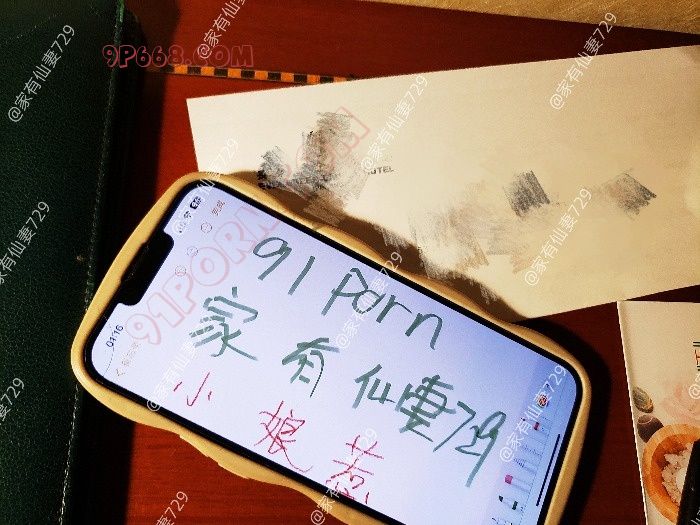 9P668.COM
@家有仙妻729
@家有仙妻729
@家有仙妻729
@家有仙妻729
@家有仙妻729
@家有仙妻729
@家有仙妻729
@家有仙妻729
@家有仙妻729
@家有仙妻729
@家有仙妻729
91PORN
.COM
OTEL
01:16
完成
91 Porn
家有仙妻729
小娘惹